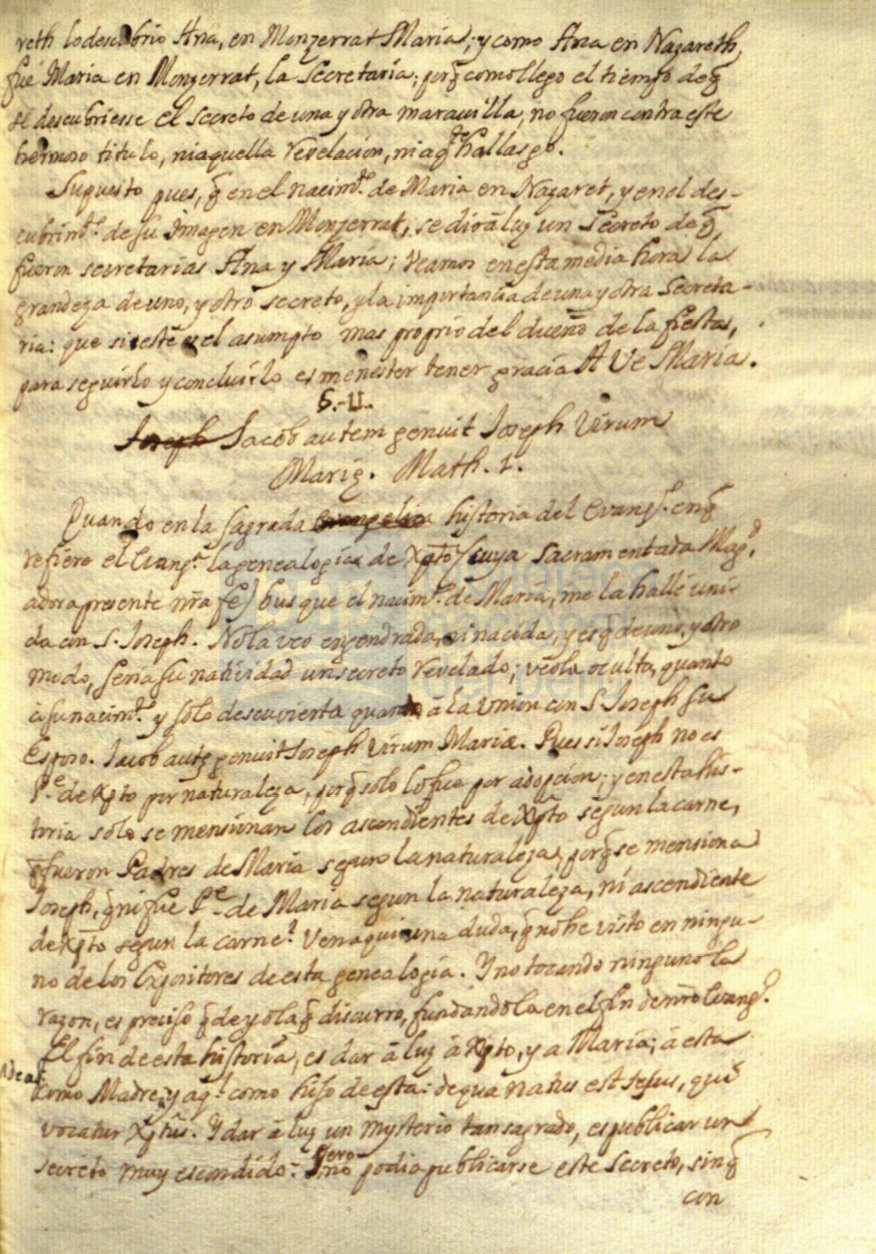 reth lo descubrio Ana, en Monzerrat Maria; y como Ana en Nazareth,
fué Maria en Monzerrat, la Secretaria; porq̃ como llego el tiempo de q̃
se descubriesse el secreto de una y otra marauilla, no fueron contra este
hermoso titulo, ni aquella revelacion, ni aq̃l hallasgo.
Supuesto pues, q̃ en el nacim.to de Maria en Nazaret, y en el des-
cubrim.to de su Imagen en Monzerrat, se dio à luz un Secreto de q̃
fueron secretarias Ana y Maria; veamos en esta media hora la
grandeza de uno, y otro secreto, y la importancia de una y otra Secreta-
ria: que si este es el asumpto mas proprio del dueño de la fiesta,
para seguirlo y concluirlo es menester tener gracia AVe Maria.
§.-II.
Joseph Jacob autem genuit Joseph Virum
Marię. Math. 1.
Quando en la sagrada Evangelica historia del Evang.o en q̃
refiere el Evang.ta la genealogia de Xp̃to (cuya Sacramentada Mag.d
adora presente nr̃a fe) busque el nacim.to de Maria, me la hallè uni-
da con S. Joseph. No la veo engendrada, ni nacida, y es q̃ de uno, y otro
modo, seria su natividad un secreto revelado; veola oculta, quanto
à su nacim.to y solo descuvierta quanto à la Union con S. Joseph su
Esposo. Jacob autẽ genuit Joseph Virum Mariæ. Pues si Joseph no es
P.e de Xp̃to por naturaleza, porq̃ solo lo fue por adopcion; y en esta his-
toria solo se mensionan los ascendientes de Xp̃to segun la carne,
q̃ fueron Padres de Maria segun la naturaleza, porq̃ se mensiona
Joseph, q̃ ni fue P.e de Maria segun la naturaleza, ni ascendiente
de Xp̃to segun la carne? Ven aqui una duda, q̃ no he visto en ningu-
no de los Expositores de esta genealogia. Y no tocando ninguno la
razon, es preciso q̃ de yo la q̃ discurro, fundandola en el fin de nr̃o Evang.ta
El fin de esta historia, es dar à luz à Xp̃to, y a Maria; à esta
como Madre, y aq̃l como hijo de esta: de qua natus est Jesus, qui
vocatur Xp̃tus. Y dar à luz un mysterio tan sagrado, es publicar un
secreto muy escondido: Pero no podia publicarse este Secreto, sin q̃
con